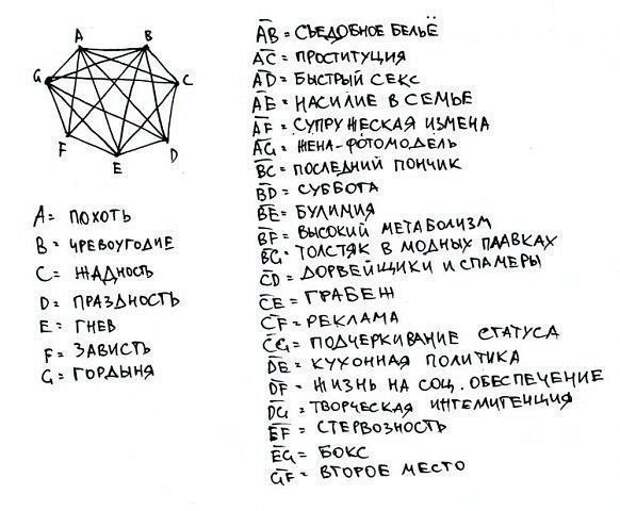 A B
G C
F D
E
A = ПОХОТЬ
B = ЧРЕВОУГОДИЕ
C = ЖАДНОСТЬ
D = ПРАЗДНОСТЬ
E = ГНЕВ
F = ЗАВИСТЬ
G = ГОРДЫНЯ
AB = СЪЕДОБНОЕ БЕЛЬЁ
AC = ПРОСТИТУЦИЯ
AD = БЫСТРЫЙ СЕКС
AE = НАСИЛИЕ В СЕМЬЕ
AF = СУПРУЖЕСКАЯ ИЗМЕНА
AG = ЖЕНА-ФОТОМОДЕЛЬ
BC = ПОСЛЕДНИЙ ПОНЧИК
BD = СУББОТА
BE = БУЛИМИЯ
BF = ВЫСОКИЙ МЕТАБОЛИЗМ
BG = ТОЛСТЯК В МОДНЫХ ПЛАВКАХ
CD = ДОРВЕЙЩИКИ И СПАМЕРЫ
CE = ГРАБЕЖ
CF = РЕКЛАМА
CG = ПОДЧЕРКИВАНИЕ СТАТУСА
DE = КУХОННАЯ ПОЛИТИКА
DF = ЖИЗНЬ НА СОЦ. ОБЕСПЕЧЕНИЕ
DG = ТВОРЧЕСКАЯ ИНТЕЛИГЕНЦИЯ
EF = СТЕРВОЗНОСТЬ
EG = БОКС
GF = ВТОРОЕ МЕСТО